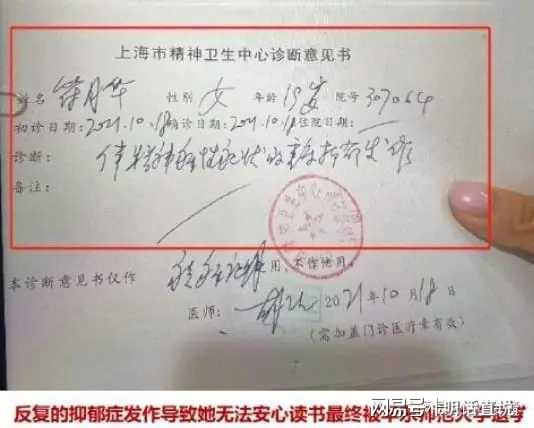 上海市精神卫生中心诊断意见书
姓名 性别 女 年龄 19岁 院号 307064
初诊日期:2021.10.18 确诊日期:2021.10.18 住院日期:
诊断: 伴精神病性症状的重度抑郁发作
备注:
本诊断意见书仅作 用,不作他用。
医师: 2021年10月18日
(需加盖门诊医疗章有效)
反复的抑郁症发作导致她无法安心读书最终被华东师范大学退学
网易号